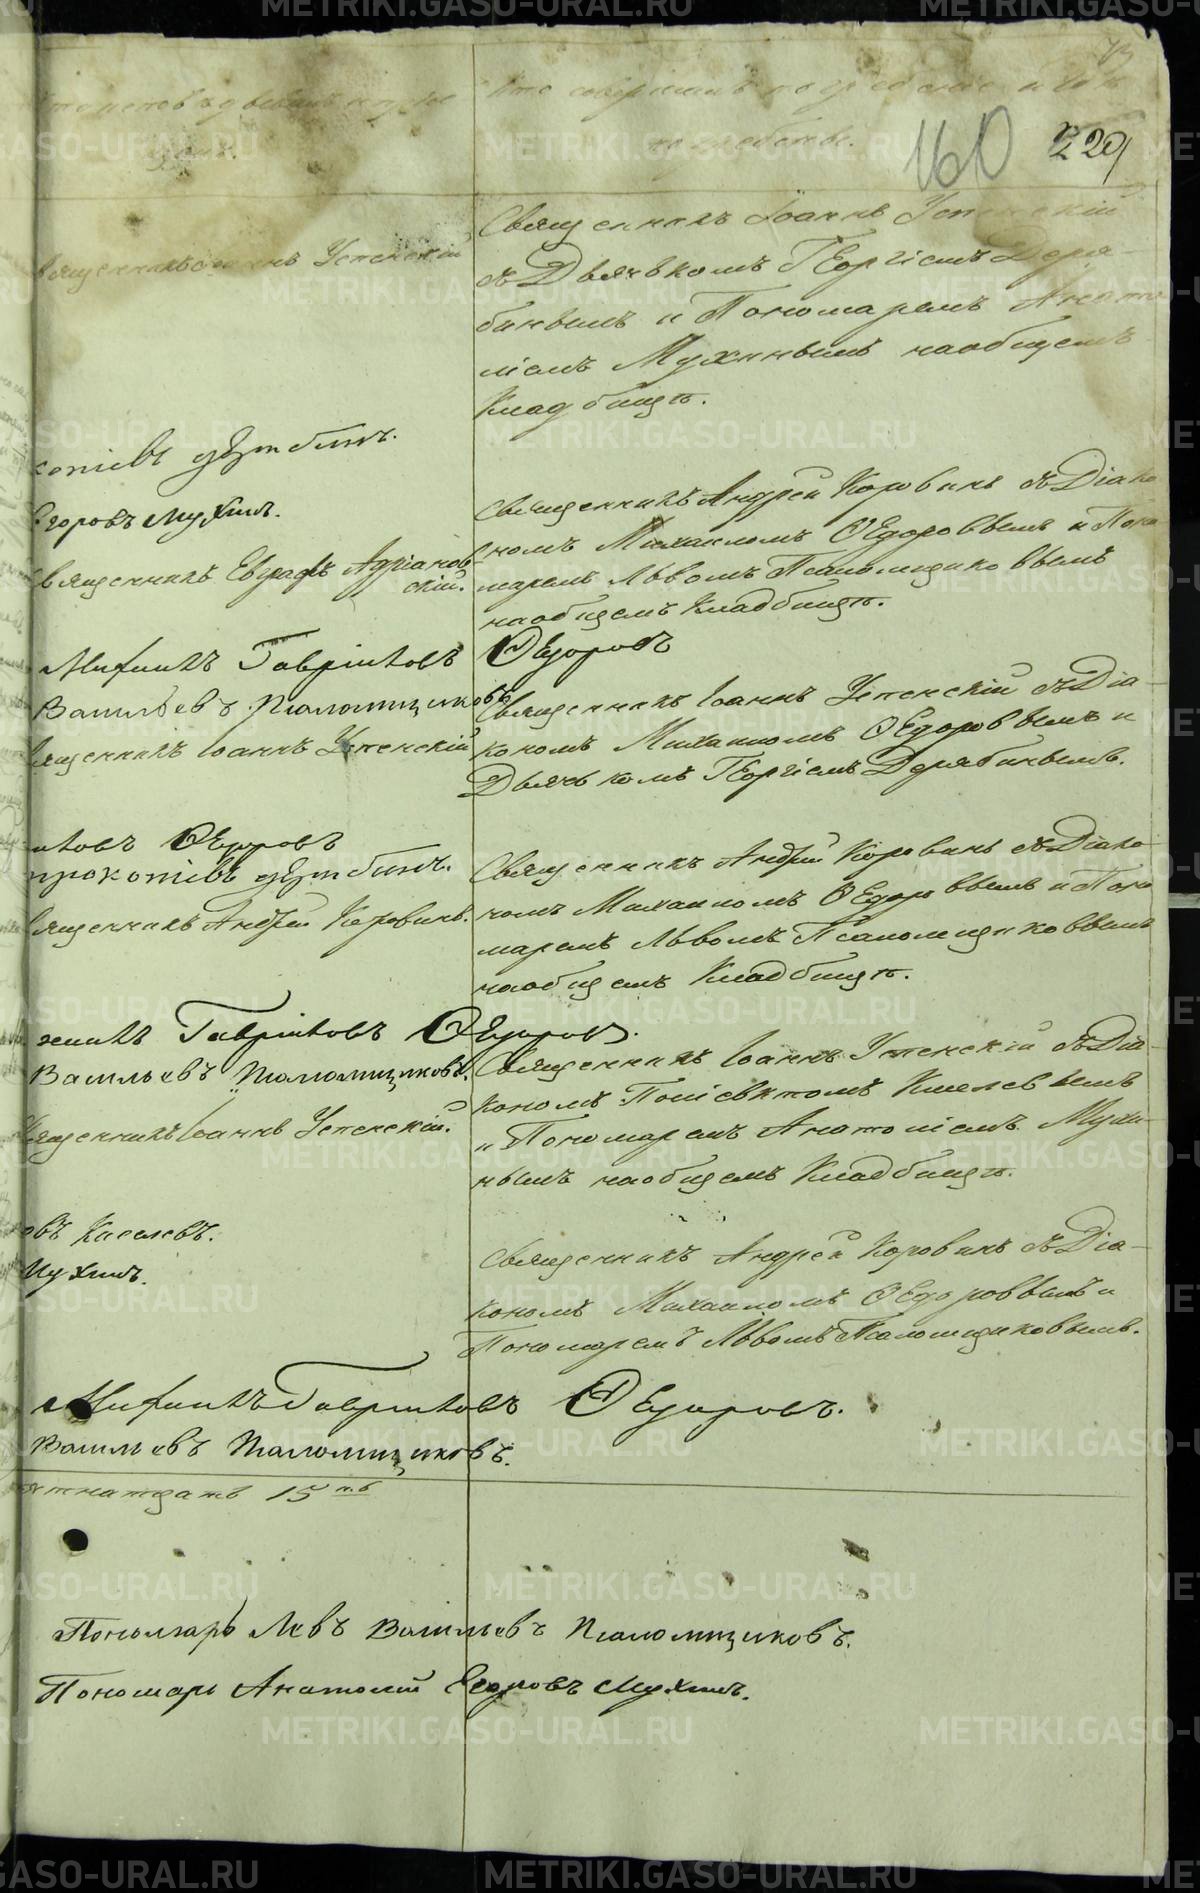 Кто совершалъ погребеніе и гдѣ
погребены.
160
229
Священникъ Іоаннъ Успенскій
съ Дьячкомъ Георгіемъ Деря-
бинымъ и Пономаремъ Анато-
ліемъ Мухинымъ на общемъ
Кладбищѣ.
Іоаннъ Успенскій
Дерябинъ.
Егоровъ Мухинъ.
Священникъ Евграфъ Адріанов-
скій.
Священникъ Андрей Коровинъ съ Діако-
номъ Михаиломъ Ѳедоровымъ и Поно-
маремъ Львомъ Псаломщиковымъ
на общемъ Кладбищѣ.
Михаилъ Гавриловъ Ѳедоровъ
Васильевъ Псаломщиковъ
Священникъ Іоаннъ Успенскій
Священникъ Іоаннъ Успенскій съ Діа-
кономъ Михаиломъ Ѳедоровымъ и
Дьячкомъ Георгіемъ Дерябинымъ.
иловъ Ѳедоровъ
прокопіевъ Дерябинъ.
Священникъ Андрей Коровинъ.
Священникъ Андрей Коровинъ съ Діако-
номъ Михаиломъ Ѳедоровымъ и Поно-
маремъ Львомъ Псаломщиковымъ
на общемъ Кладбищѣ.
хаилъ Гавриловъ Ѳедоровъ.
Васильевъ Псаломщиковъ.
Священникъ Іоаннъ Успенскій.
Священникъ Іоаннъ Успенскій съ Діа-
кономъ Поліевктомъ Киселевымъ
и Пономаремъ Анатоліемъ Мухи-
нымъ на общемъ Кладбищѣ.
овъ Киселевъ.
Мухинъ.
Священникъ Андрей Коровинъ съ Діа-
кономъ Михаиломъ Ѳедоровымъ и
Пономаремъ Львомъ Псаломщиковымъ.
Михаилъ Гавриловъ Ѳедоровъ.
Васильевъ Псаломщиковъ.
пятнатцать 15ть
Пономарь Левъ Васильевъ Псаломщиковъ.
Пономарь Анатолій Егоровъ Мухинъ.
METRIKI.GASO-URAL.RU